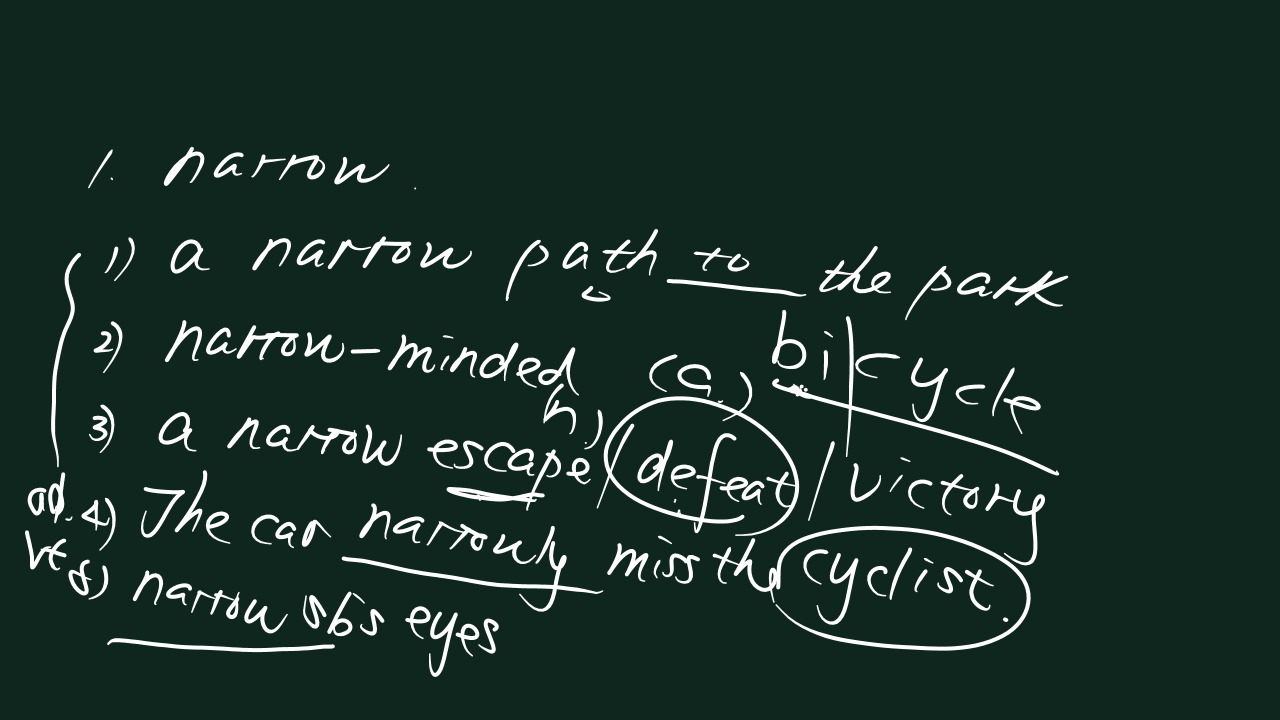 1. narrow.
1) a narrow path to the park
2) narrow-minded (a.) bi|cycle
3) a narrow escape (n.) / defeat / victory
ad. 4) The car narrowly miss the cyclist.
vt 5) narrow sb's eyes